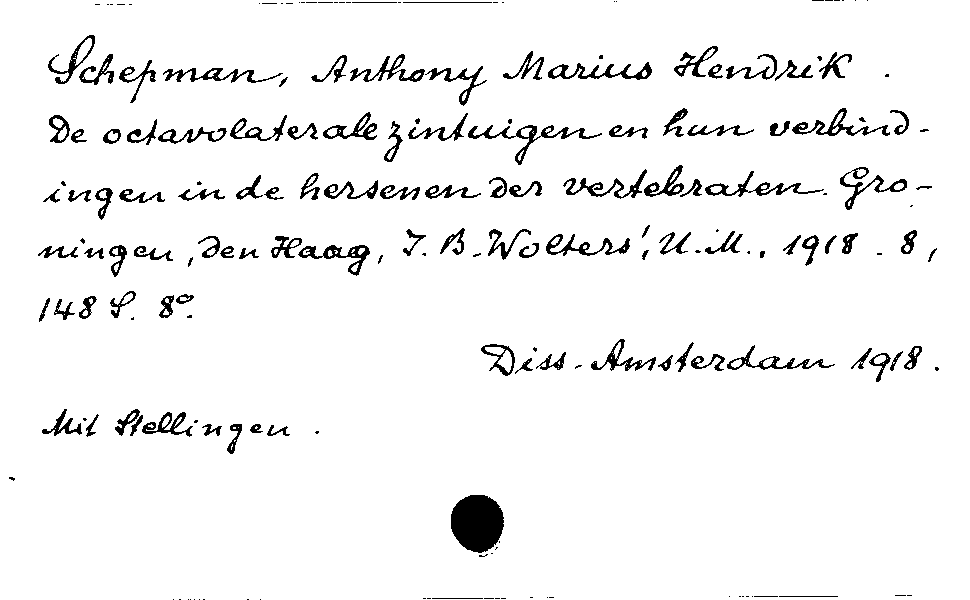 Schepman, Anthony Marius Hendrik.
De octavolaterale zintuigen en hun verbind-
ingen in de hersenen der vertebraten. Gro-
ningen, den Haag, J. B. Wolters', U. M., 1918. 8,
148 S. 8°.
Diss. Amsterdam 1918.
Mit Stellingen.